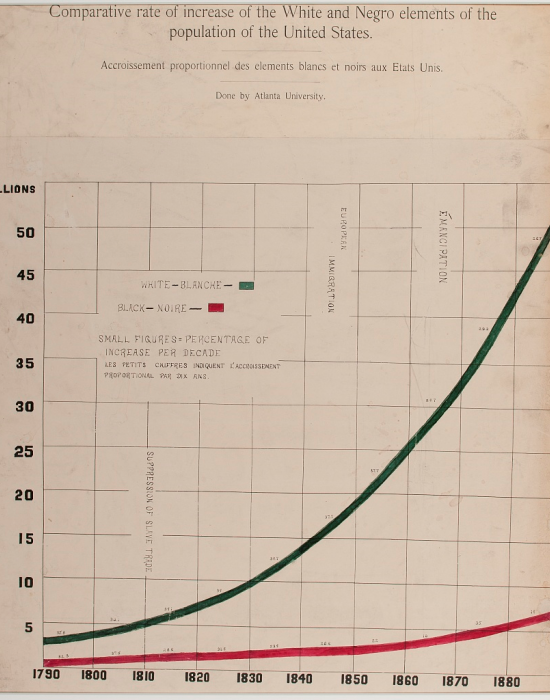 Comparative rate of increase of the White and Negro elements of the
population of the United States.
Accroissement proportionnel des elements blancs et noirs aux Etats Unis.
Done by Atlanta University.
LLIONS
50
45
40
35
30
25
20
15
10
5
EUROPEAN
IMMIGRATION
EMANCIPATION
WHITE-BLANCHE-
BLACK-NOIRE-
SMALL FIGURES=PERCENTAGE OF
INCREASE PER DECADE
LES PETITS CHIFFRES INDIQUENT L'ACCROISSEMENT
PROPORTIONAL PAR DIX ANS.
SUPPRESSION OF SLAVE TRADE
1790 1800 1810 1820 1830 1840 1850 1860 1870 1880